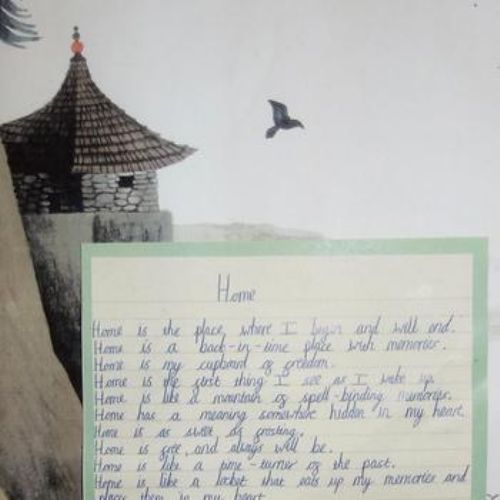 Home
Home is the place where I begin and will end.
Home is a back-in-time place with memories.
Home is my cupboard of freedom.
Home is the first thing I see as I wake up.
Home is like a mountain of spell-binding memories.
Home has a meaning somewhere hidden in my heart.
Home is as sweet as frosting.
Home is free, and always will be.
Home is like a time-turner of the past.
Home is like a locket that eats up my memories and
places them in my heart.